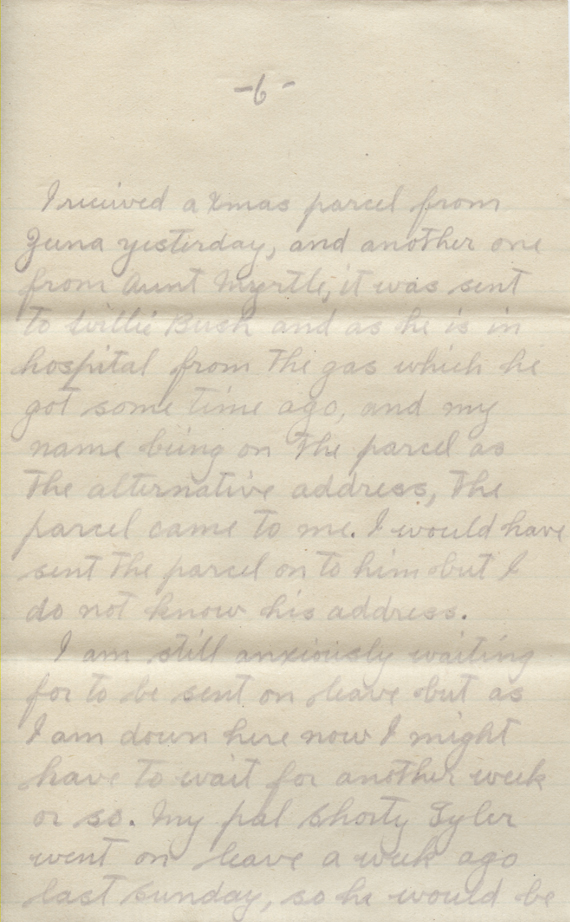 -6-
I received a Xmas parcel from
Zuna yesterday, and another one
from Aunt Myrtle, it was sent
to Willie Bush and as he is in
hospital from the gas which he
got some time ago, and my
name being on the parcel as
the alternative address, the
parcel came to me. I would have
sent the parcel on to him but I
do not know his address.
I am still anxiously waiting
for to be sent on leave but as
I am down here now I might
have to wait for another week
or so. My pal Shorty Tyler
went on leave a week ago
last Sunday, so he would be